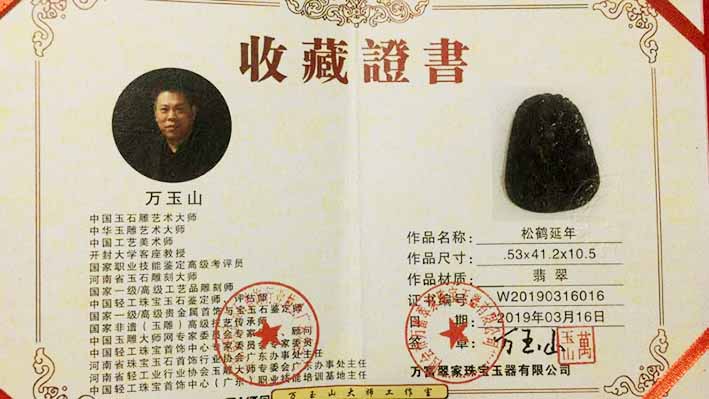 收藏證書
万玉山
中国玉石雕艺术大师
中华玉雕艺术大师
中国工艺美术师
开封大学客座教授
国家职业技能鉴定高级考评员
河南省玉石雕刻大师
国家一级/高级工艺品雕刻师
中国轻工珠宝玉石鉴定师、评估师
国家一级/高级贵金属首饰与宝玉石鉴定师
国家非遗（玉雕）高级技艺传承师
中国玉雕大师网专家委员会专家、顾问
中国轻工珠宝首饰中心专家委员会专家委员
河南省珠宝玉石首饰行业协会广东办事处主任
河南省轻工业行业协会玉雕大师专委会广东办事处主任
中国轻工珠宝首饰中心（广东）职业技能培训基地主任
作品名称：松鹤延年
作品尺寸：.53x41.2x10.5
作品材质：翡翠
证书编号：W20190316016
日期：2019年03月16日
签章：万玉山
萬玉山
万富翠家珠宝玉器有限公司
万玉山大师工作室